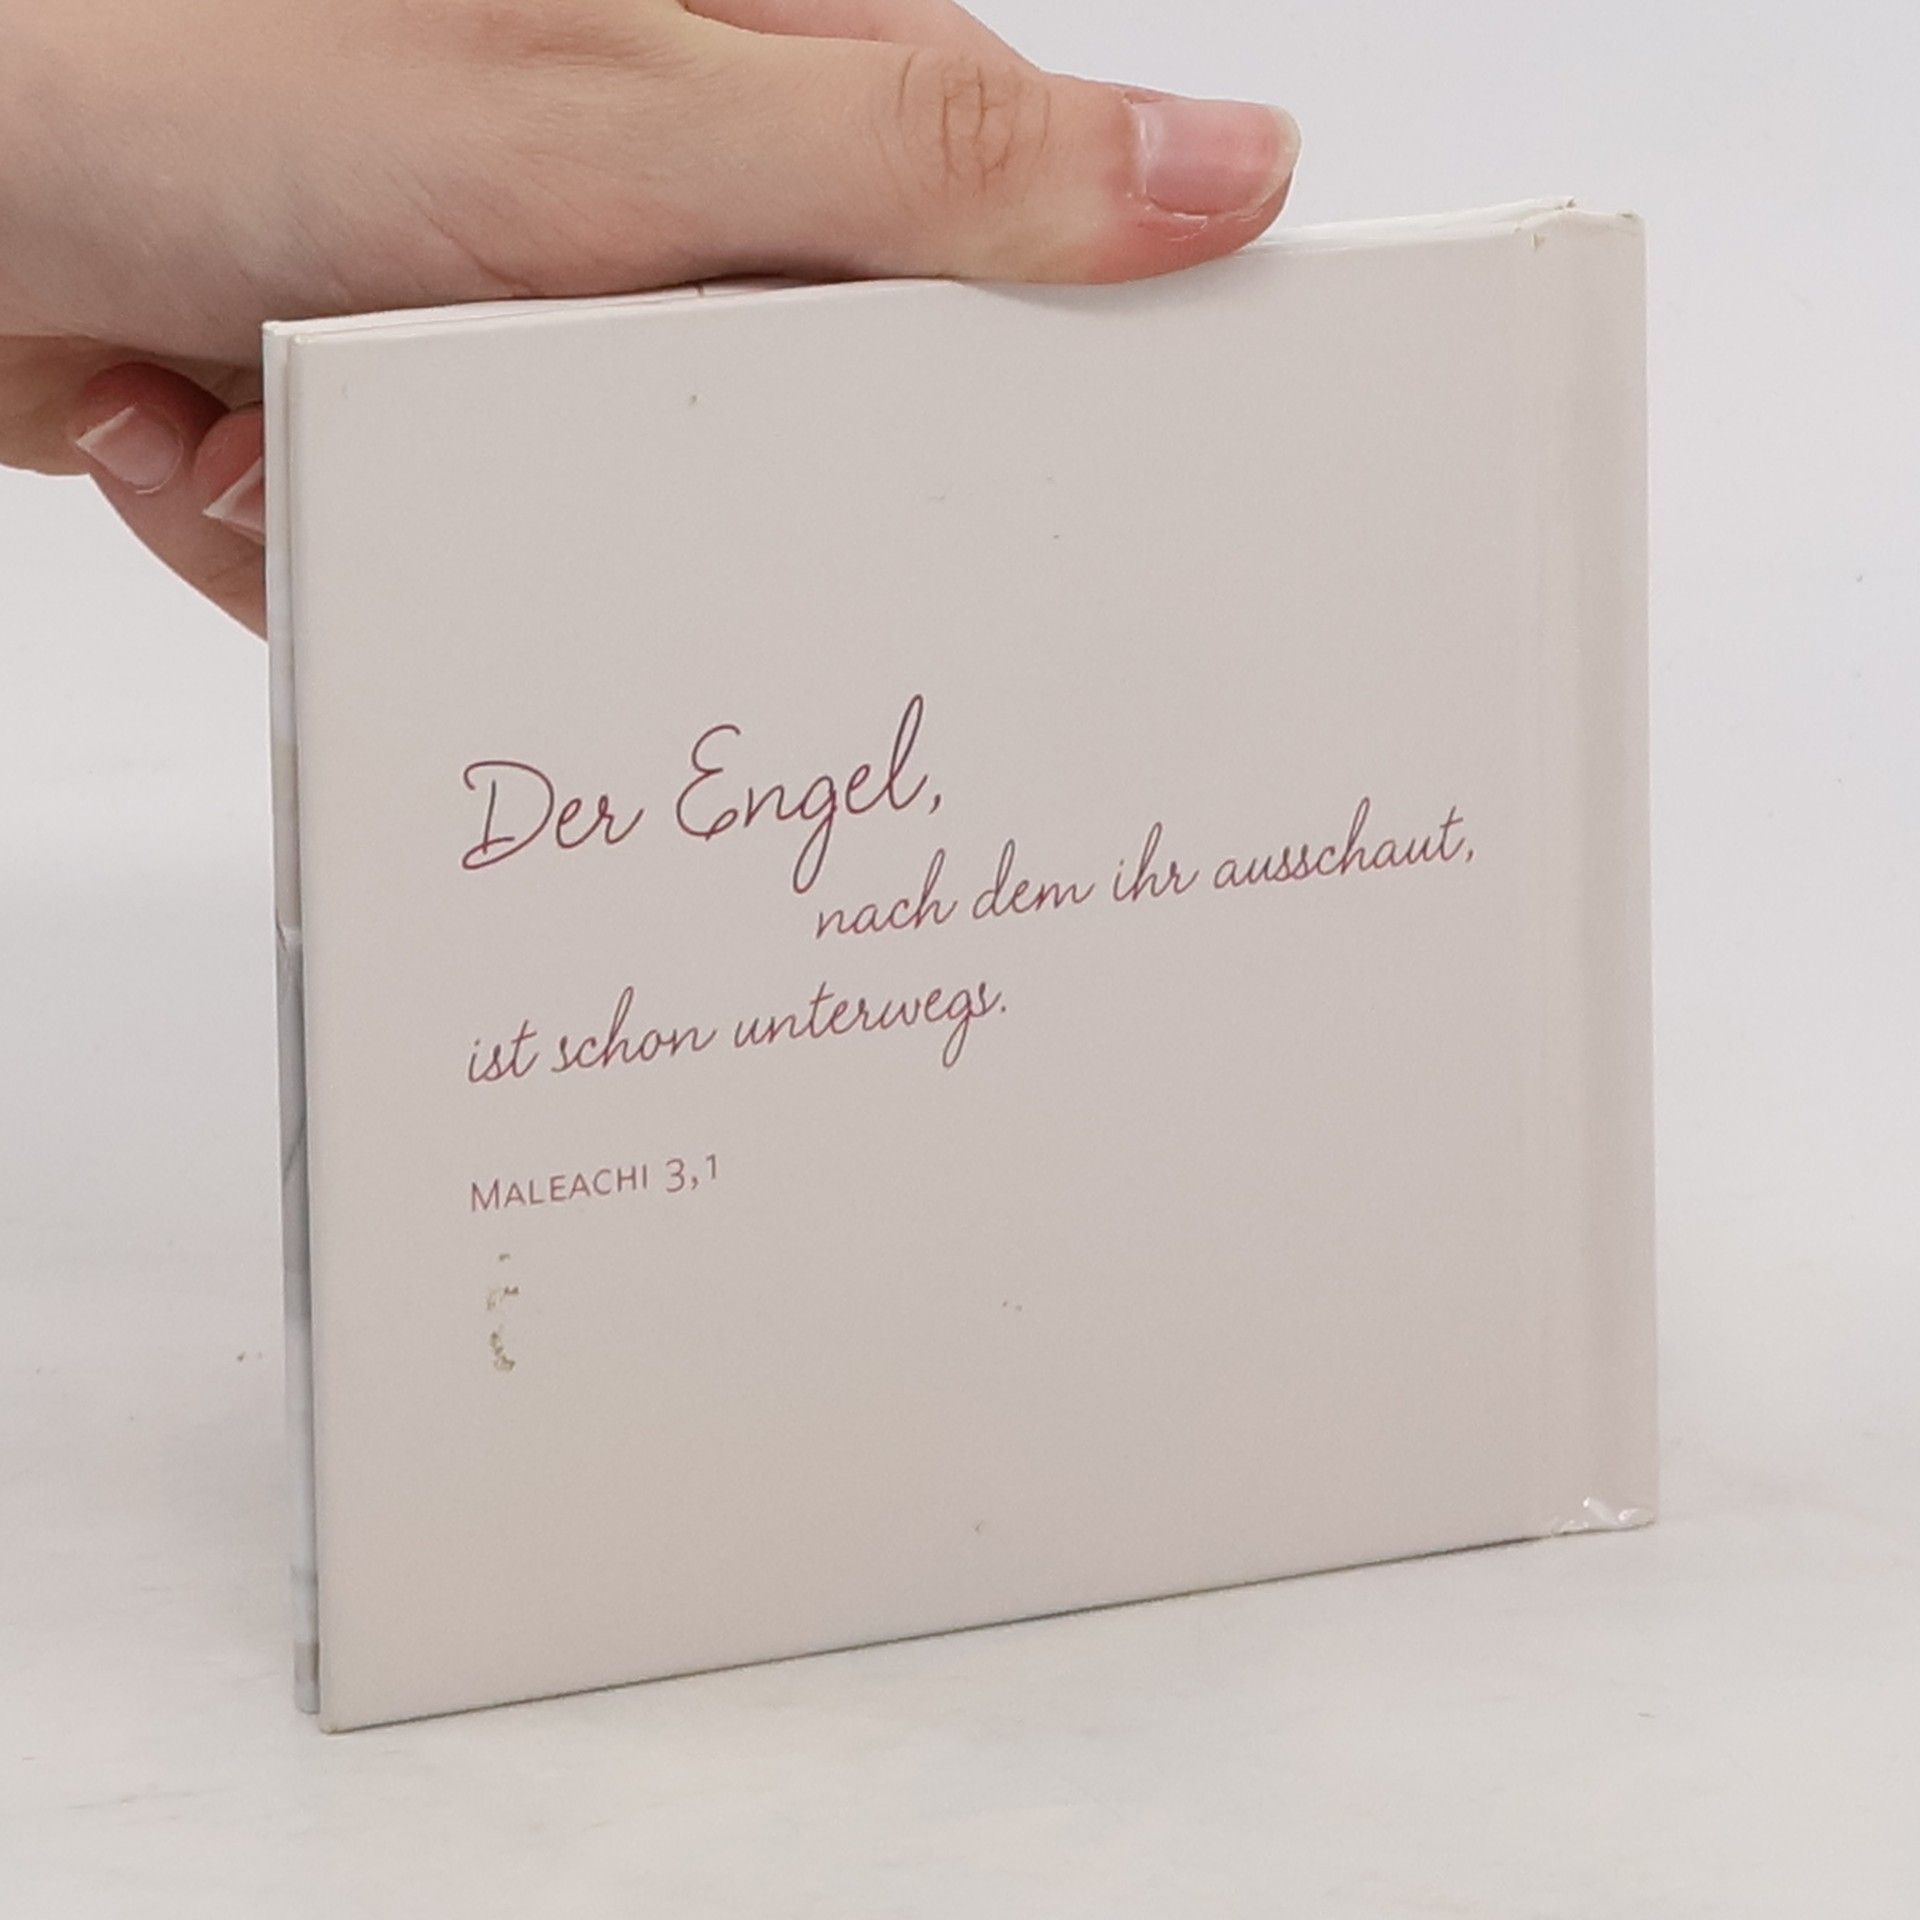 Der Engel,
nach dem ihr ausschaut,
ist schon unterwegs.
Maleachi 3,1